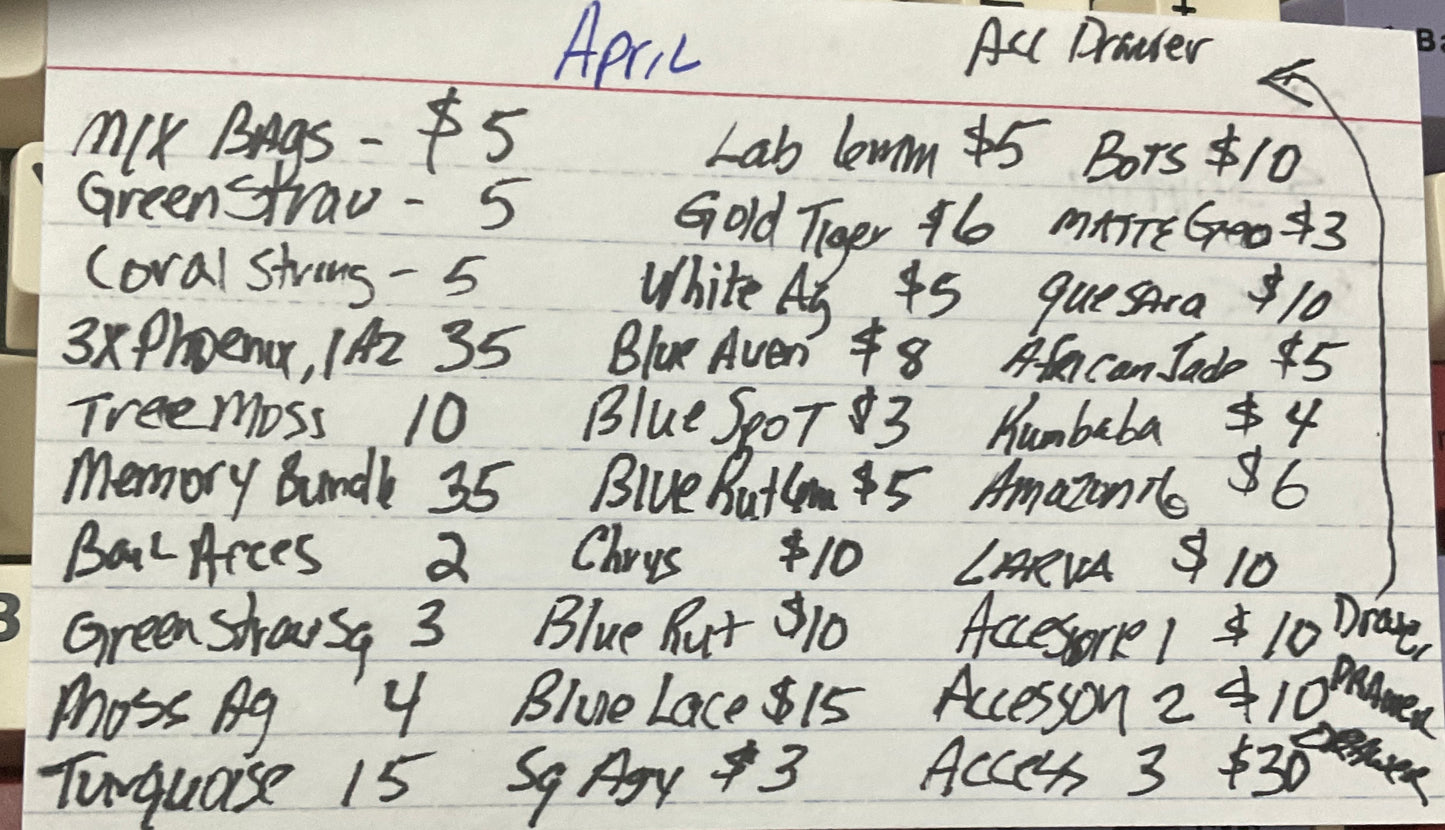 April Acc Drawer
Mix Bags - $5 Lab 6mm $5 Bots $10
Green Straw - 5 Gold Tiger $6 Matte Geo $3
Coral String - 5 White Ag $5 que sara $10
3x Phoenix, 1 Az 35 Blue Aven $8 African Jade $5
Tree Moss 10 Blue Spot $3 Kumbaba $4
Memory Bundle 35 Blue Rut 6m $5 Amazonite $6
Acces 2 Chrys $10 LARVA $10
Green Straw Sq 3 Blue Rut $10 Accessorie 1 $10 Drawer
Moss Ag 4 Blue Lace $15 Accessory 2 $10 DRAWER
Turquoise 15 Sq Agy $3 Access 3 $30 DRAWER